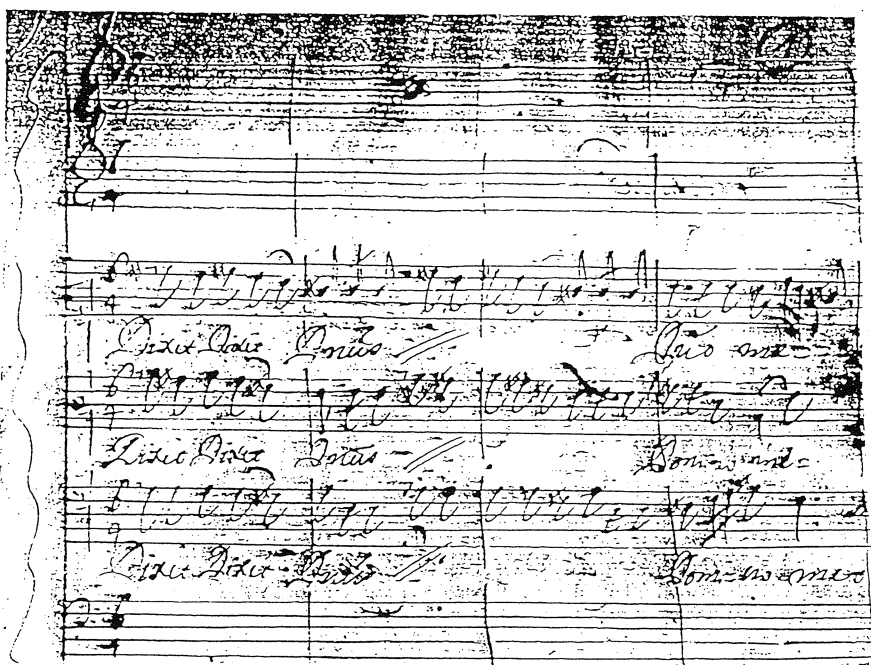 Dixit Dixit Dnus //
Dno me=
Dixit Dixit Dnus //
Dom=no me=
Dixit Dixit Dnus //
Dom=no me=